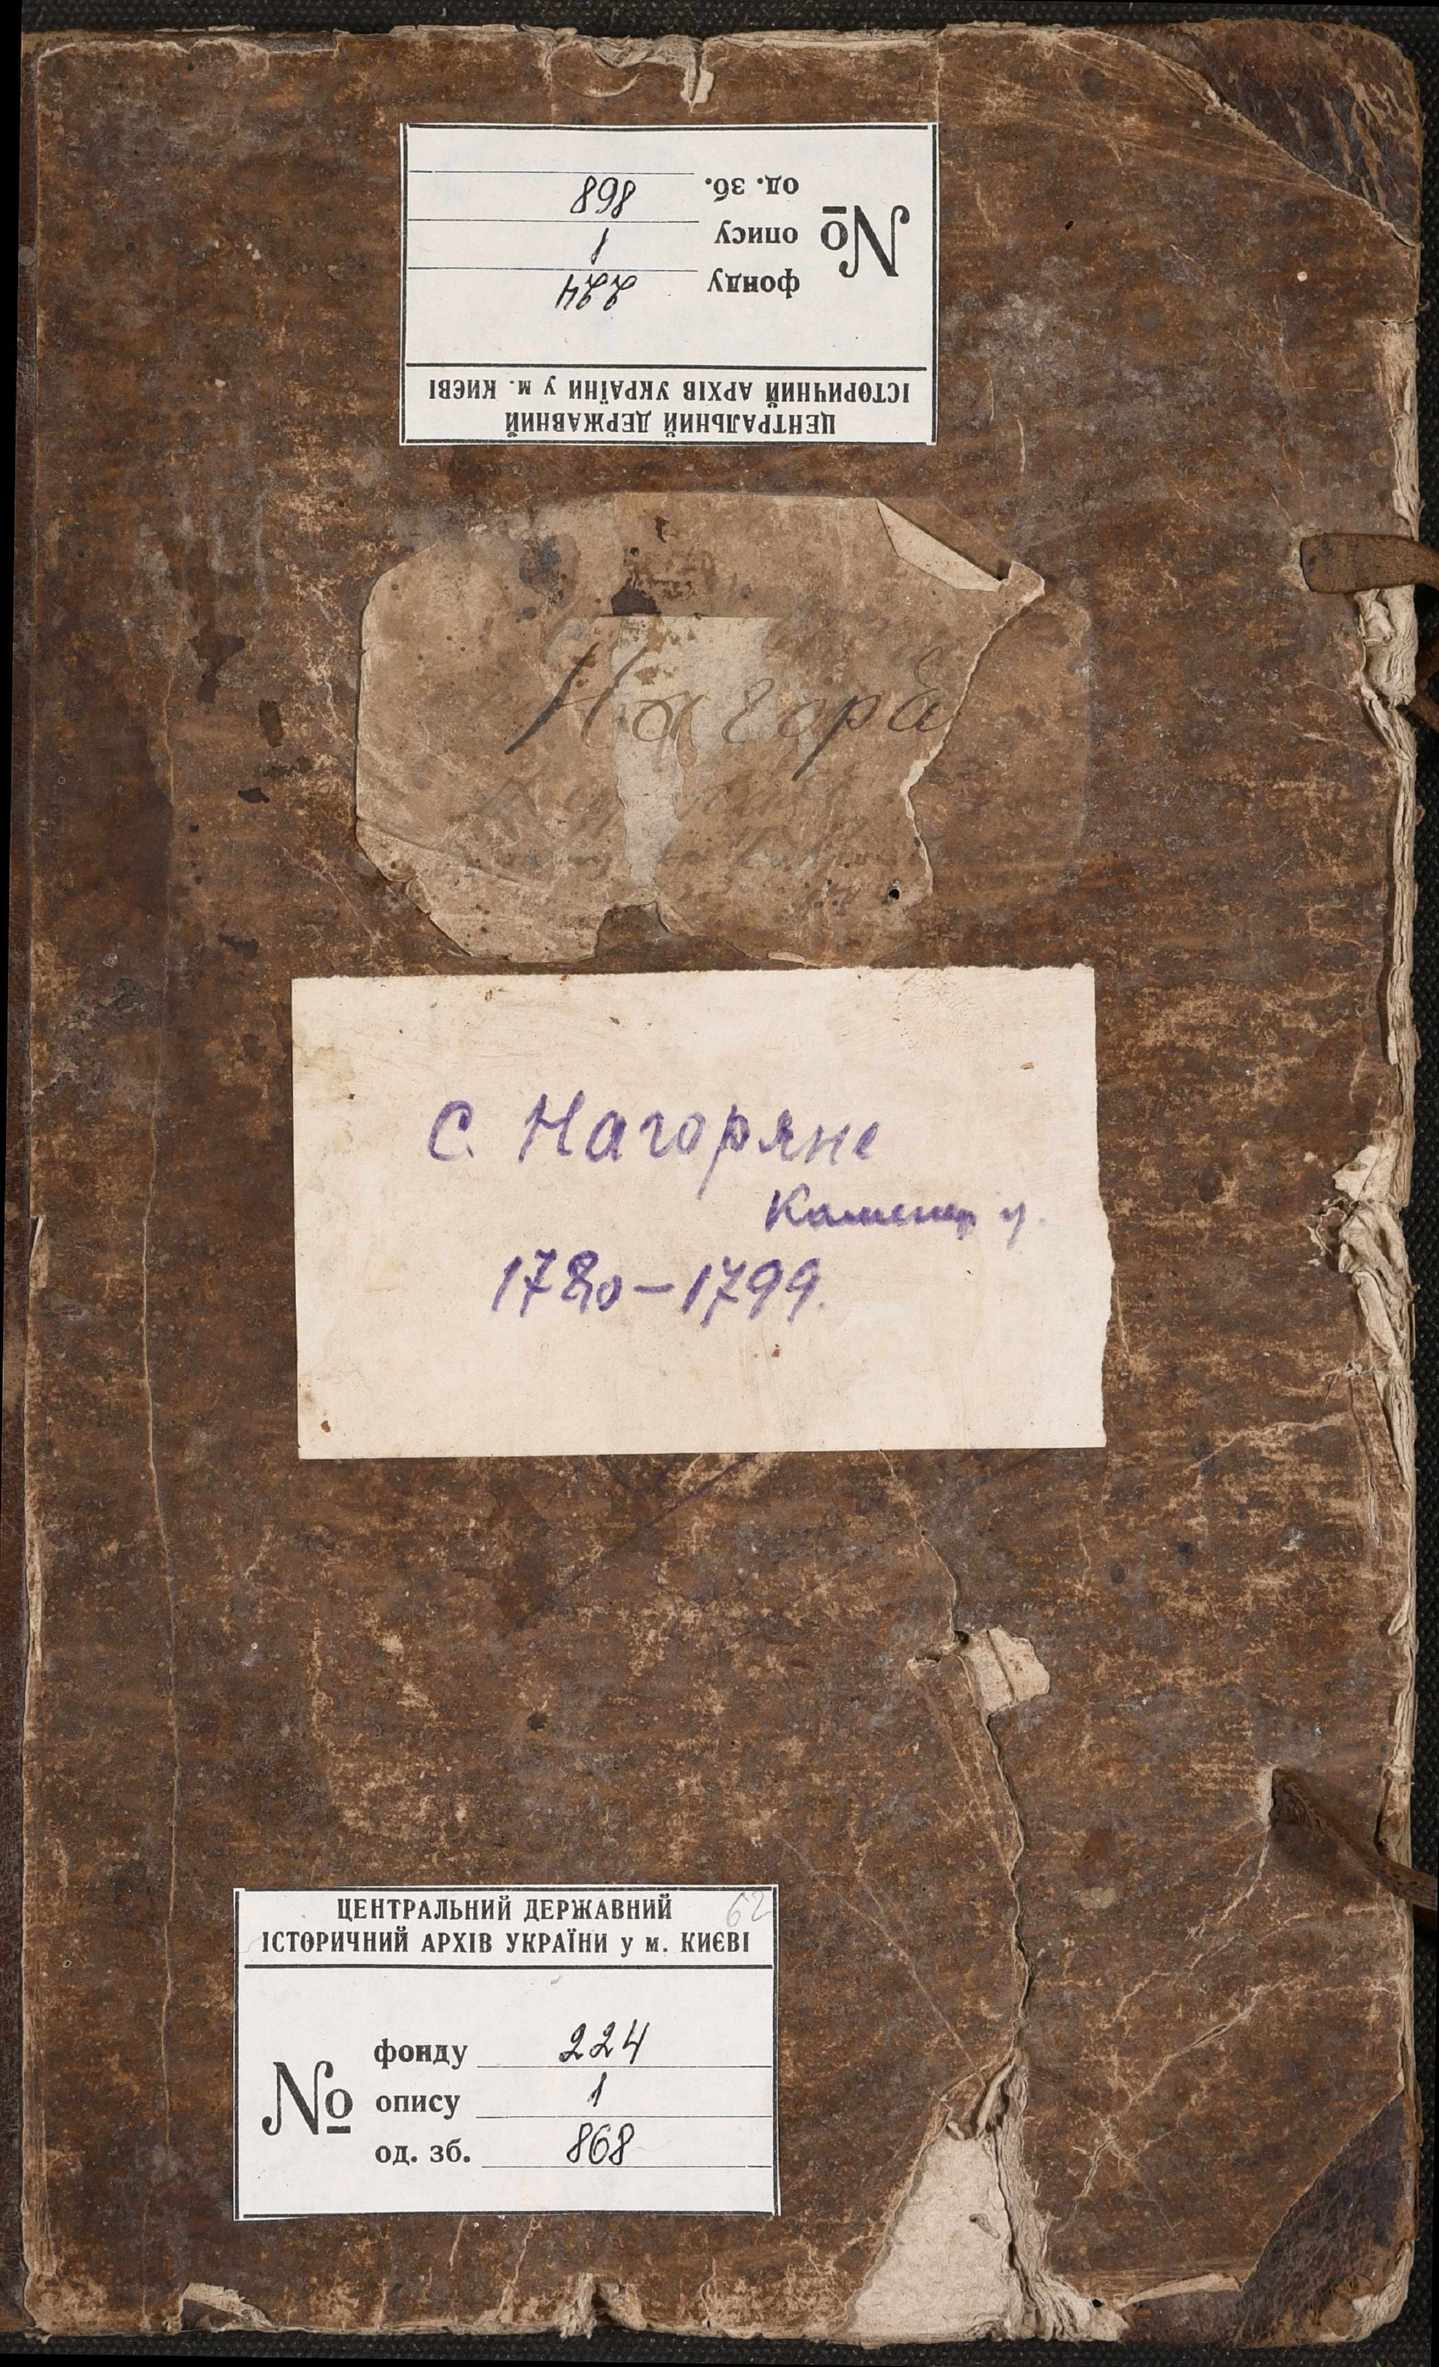 ЦЕНТРАЛЬНИЙ ДЕРЖАВНИЙ
ІСТОРИЧНИЙ АРХІВ УКРАЇНИ у м. КИЄВІ
№
фонду 224
опису 1
од. зб. 868
Нагоря
С. Нагоряне
Каменец у.
1780-1799.
62
ЦЕНТРАЛЬНИЙ ДЕРЖАВНИЙ
ІСТОРИЧНИЙ АРХІВ УКРАЇНИ у м. КИЄВІ
№
фонду 224
опису 1
од. зб. 868